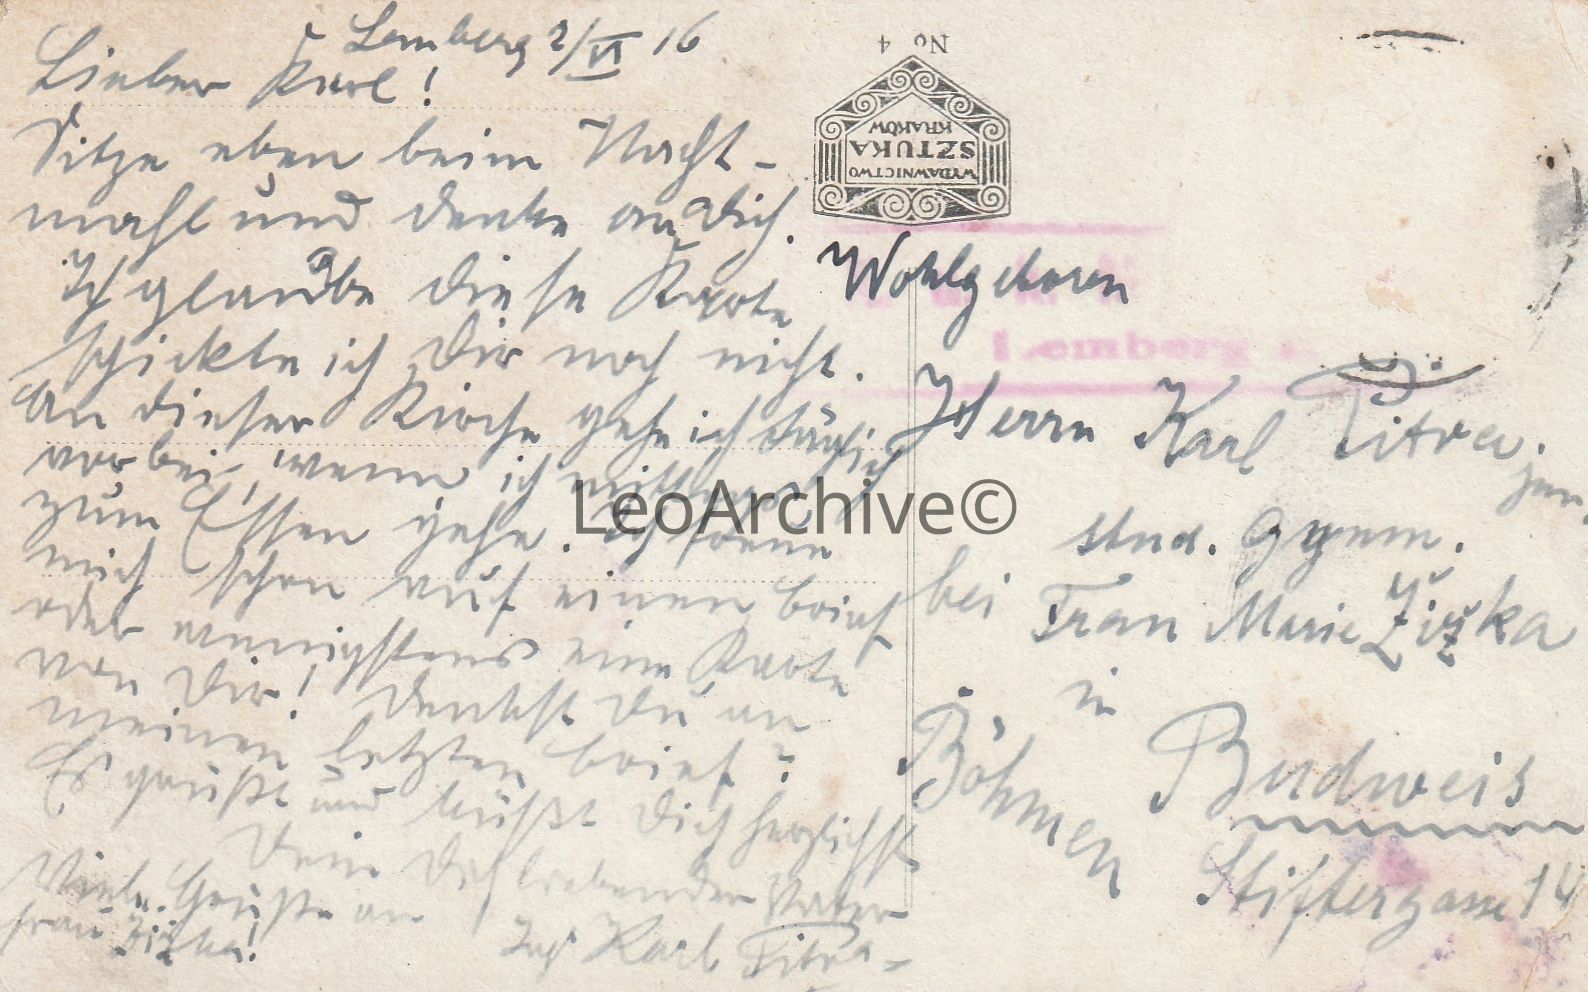 Lemberg 2/VI 16
Lieber Karl!
Sitze eben beim Nacht-
mahl und denke an Dich.
Ich glaube diese Karte
schickte ich Dir noch nicht.
An dieser Kirche gehe ich täglich
vorbei, wenn ich mittags
zum Essen gehe. Ich freue
mich schon auf einen Brief
oder wenigstens eine Karte
von Dir! Denkst Du an
meinen letzten Brief?
Es grüßt und küßt Dich herzlichst
Dein Dich liebender Vater
Karl Pitra
Viele Grüße an
Frau Žižka!
No 4
WYDAWNICTWO
SZTUKA
KRAKÓW
Lemberg
Wohlgeboren
Herrn Karl Pitra jun.
stud. gymn.
bei Frau Marie Žižka
in
Budweis
Böhmen
Stiftergasse 14
LeoArchive©